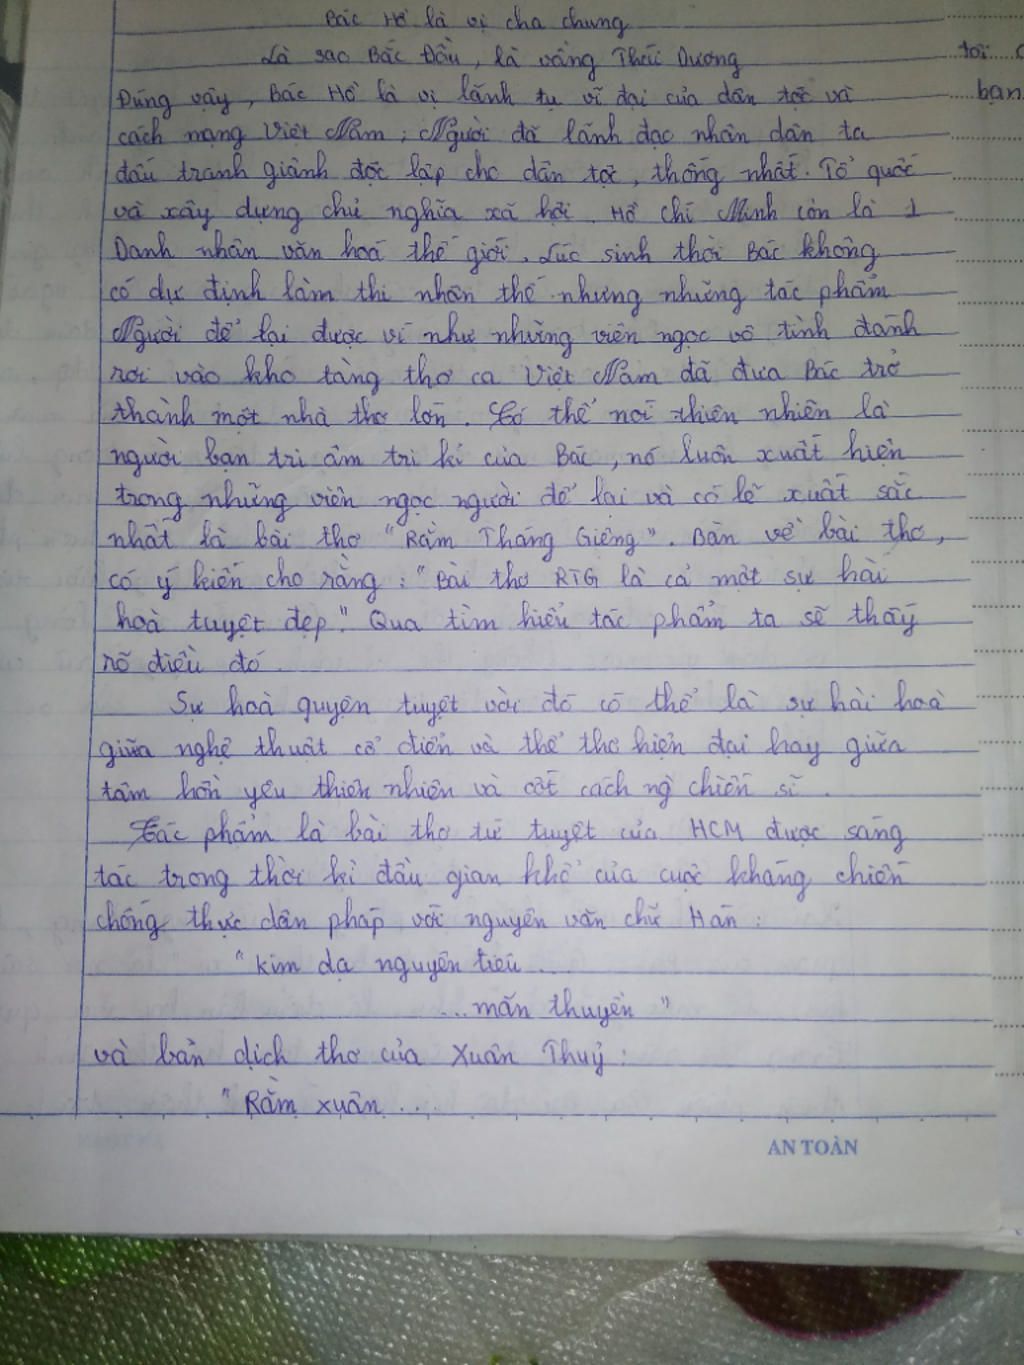 Bác Hồ là vị cha chung
Là sao Bắc Đẩu, là vầng Thái Dương
tôi
Đúng vậy, Bác Hồ là vị lãnh tụ vĩ đại của dân tộc và
bạn
cách mạng Việt Nam; Người đã lãnh đạo nhân dân ta
đấu tranh giành độc lập cho dân tộc, thống nhất. Tổ quốc
và xây dựng chủ nghĩa xã hội. Hồ Chí Minh còn là 1
Danh nhân văn hoá thế giới. Lúc sinh thời Bác không
có dự định làm thi nhân thế nhưng những tác phẩm
Người để lại được ví như những viên ngọc vô tình đánh
rơi vào kho tàng thơ ca Việt Nam đã đưa Bác trở
thành một nhà thơ lớn. Có thể nói thiên nhiên là
người bạn tri âm tri kỉ của Bác, nó luôn xuất hiện
trong những viên ngọc người để lại và có lẽ xuất sắc
nhất là bài thơ "Rằm Tháng Giêng". Bàn về bài thơ,
có ý kiến cho rằng: "Bài thơ RTG là cả một sự hài
hoà tuyệt đẹp". Qua tìm hiểu tác phẩm ta sẽ thấy
rõ điều đó.
Sự hoà quyện tuyệt vời đó có thể là sự hài hoà
giữa nghệ thuật cổ điển và thể thơ hiện đại hay giữa
tâm hồn yêu thiên nhiên và cốt cách ng` chiến sĩ.
Tác phẩm là bài thơ tứ tuyệt của HCM được sáng
tác trong thời kì đầu gian khổ của cuộc kháng chiến
chống thực dân pháp với nguyên văn chữ Hán:
"Kim dạ nguyên tiêu ...
... mãn thuyền"
và bản dịch thơ của Xuân Thuỷ:
"Rằm xuân ....
AN TOÀN